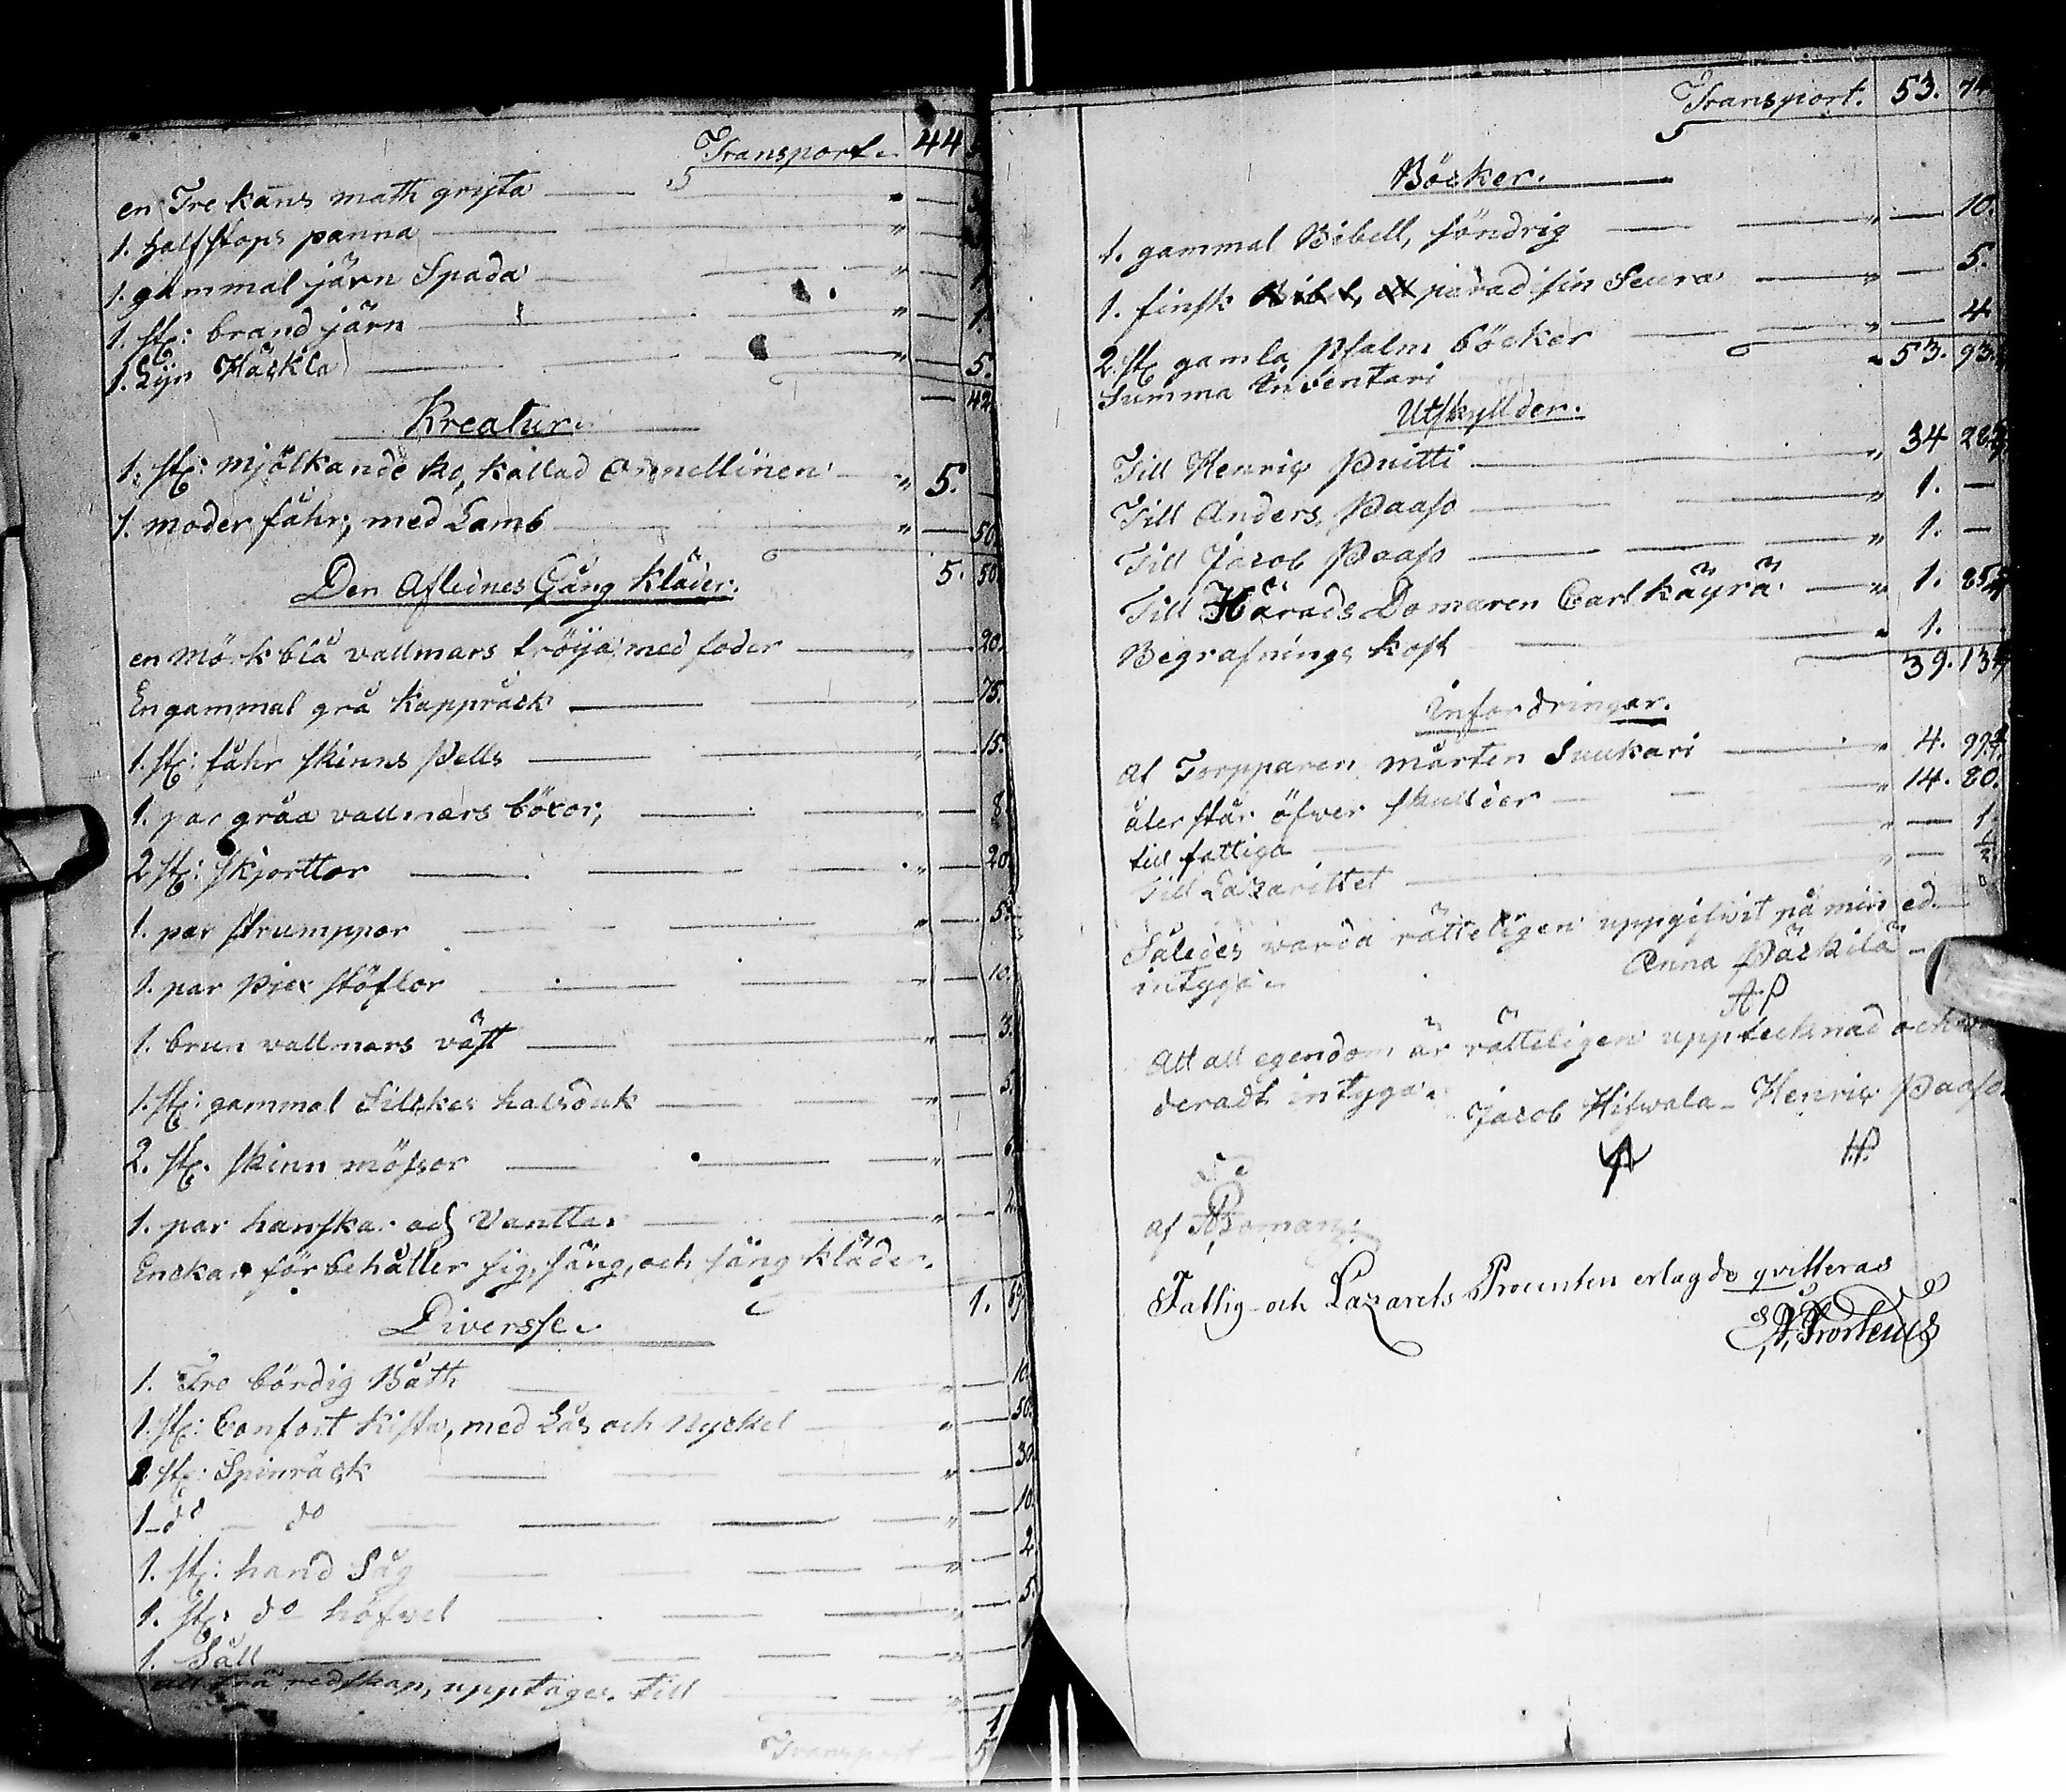 Transport. 44
en Tre kans math grifta
1. half stops panna
1. gammal järn Spada 1
1. st: brand järn 1.
1. Lijn Häckla 5.
42
Kreatur.
1. st: mjölkande ko, kallad Ornellinen 5. —
1. moder fåhr, med Lamb " — 50
5. 50.
Den Aflednes Gång kläder.
en mörk blå vallmars tröija med foder — 20.
En gammal grå kappråck — 75.
1. st: fåhr skinns Pells — 15.
1. par gråa vallmars böxor, " — 8
2 st: skjorttor " — 20
1. par strumppor " — 5.
1. par Pjex stöflor — 10.
1. brun vallmars väst " — 3.
1. st: gammal Silckes halsduk " — 5.
2. st. skinn mössor " — 6.
1. par hanska och Vantta " — 2.
Enckan förbehåller sig, säng, och säng kläder.
1. 69
Diversse.
1. Tre bördig Båth " — 10.
1. st: Confort Kista, med Lås och Nyckel " — 50.
1 st: Spinråck " — 30.
1 — do — do " — 10.
1. st: hand Såg " — 2.
1. st: do höfvel " — 5.
1. Såll " —
all trä redskap, upptages till " —
1
Transport 5
Transport. 53. 74
Böcker.
1. gammal Bibell, söndrig " — 10.
1. finsk paradisin Seura " — 5.
2. st gamla Psalm böcker " — 4
Summa Inventari " 53. 93
Utskyllder.
Till Henric Puitti " 34 28
Till Anders Paaso " 1. —
Till Jacob Paaso " 1. —
Till Härads Domaren Carl Käyrä " 1. 85
Begrafnings kost " 1.
39. 13
Infordringar.
Af Torpparen Mårten Suukari " 4. 99
åter står öfwer skullder " 14. 80.
till fattiga " — 1.
Till Lazarettet " — ½
Således warda rätteligen uppgifwit på min ed
intyga. Anna Päckilä
AP
Att all egendom är rätteligen upptecknad och
deradt intyga. Jacob Hifwala — Henric Paaso.
HP
af Boman.
Fattig- och Lazarets Procenten erlagde qvitteras